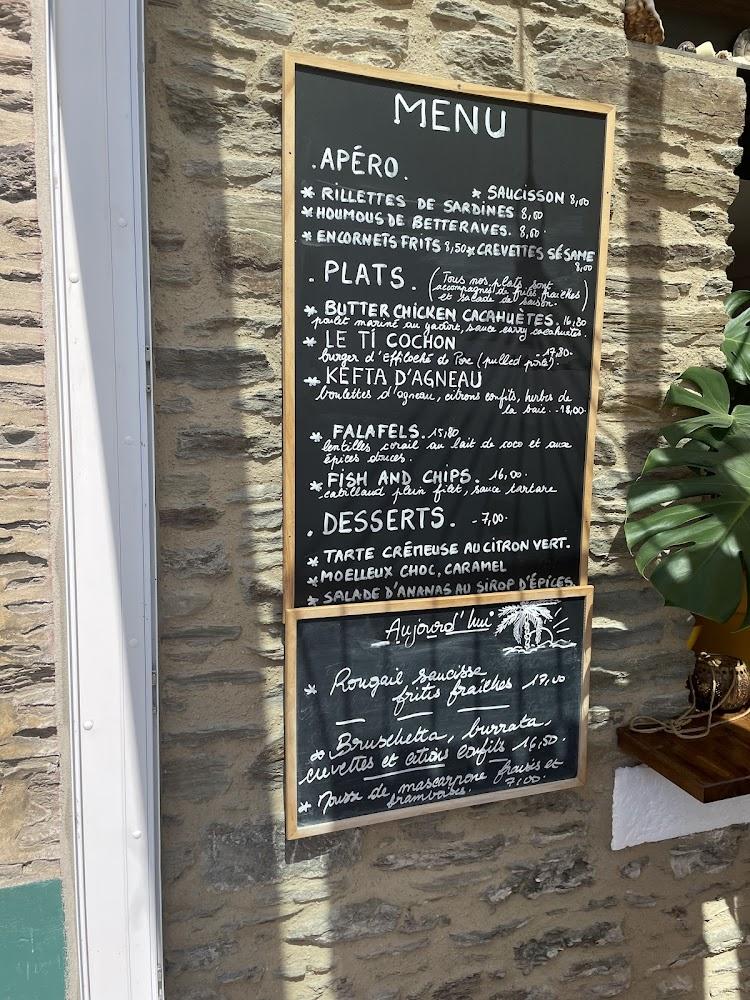 MENU
. APÉRO.
* SAUCISSON 8,00
* RILLETTES DE SARDINES 8,00
* HOUMOUS DE BETTERAVES. 8,00.
* ENCORNETS FRITS 8,50 * CREVETTES SÉSAME
8,00
. PLATS. (Tous nos plats sont
accompagnés de frites fraîches
et salade de saison.)
* BUTTER CHICKEN CACAHUÈTES. 16,80
poulet mariné au yaourt, sauce curry cacahuètes.
* LE TI COCHON
burger d'effiloché de Porc (pulled pork). -17,80.
* KEFTA D'AGNEAU
boulettes d'agneau, citrons confits, herbes de
la baie. -18,00.
* FALAFELS. 15,80
lentilles corail au lait de coco et aux
épices douces.
* FISH AND CHIPS. 16,00.
cabillaud plein filet, sauce tartare
. DESSERTS. -7,00.
* TARTE CRÉMEUSE AU CITRON VERT.
* MOELLEUX CHOC, CARAMEL
* SALADE D'ANANAS AU SIROP D'ÉPICES
Aujourd'hui
* Rougail saucisse
frites fraîches 17,00
* Bruschetta, burrata,
crevettes et citrons confits 16,50.
* Mousse de mascarpone fraises et
framboises. 7,00.